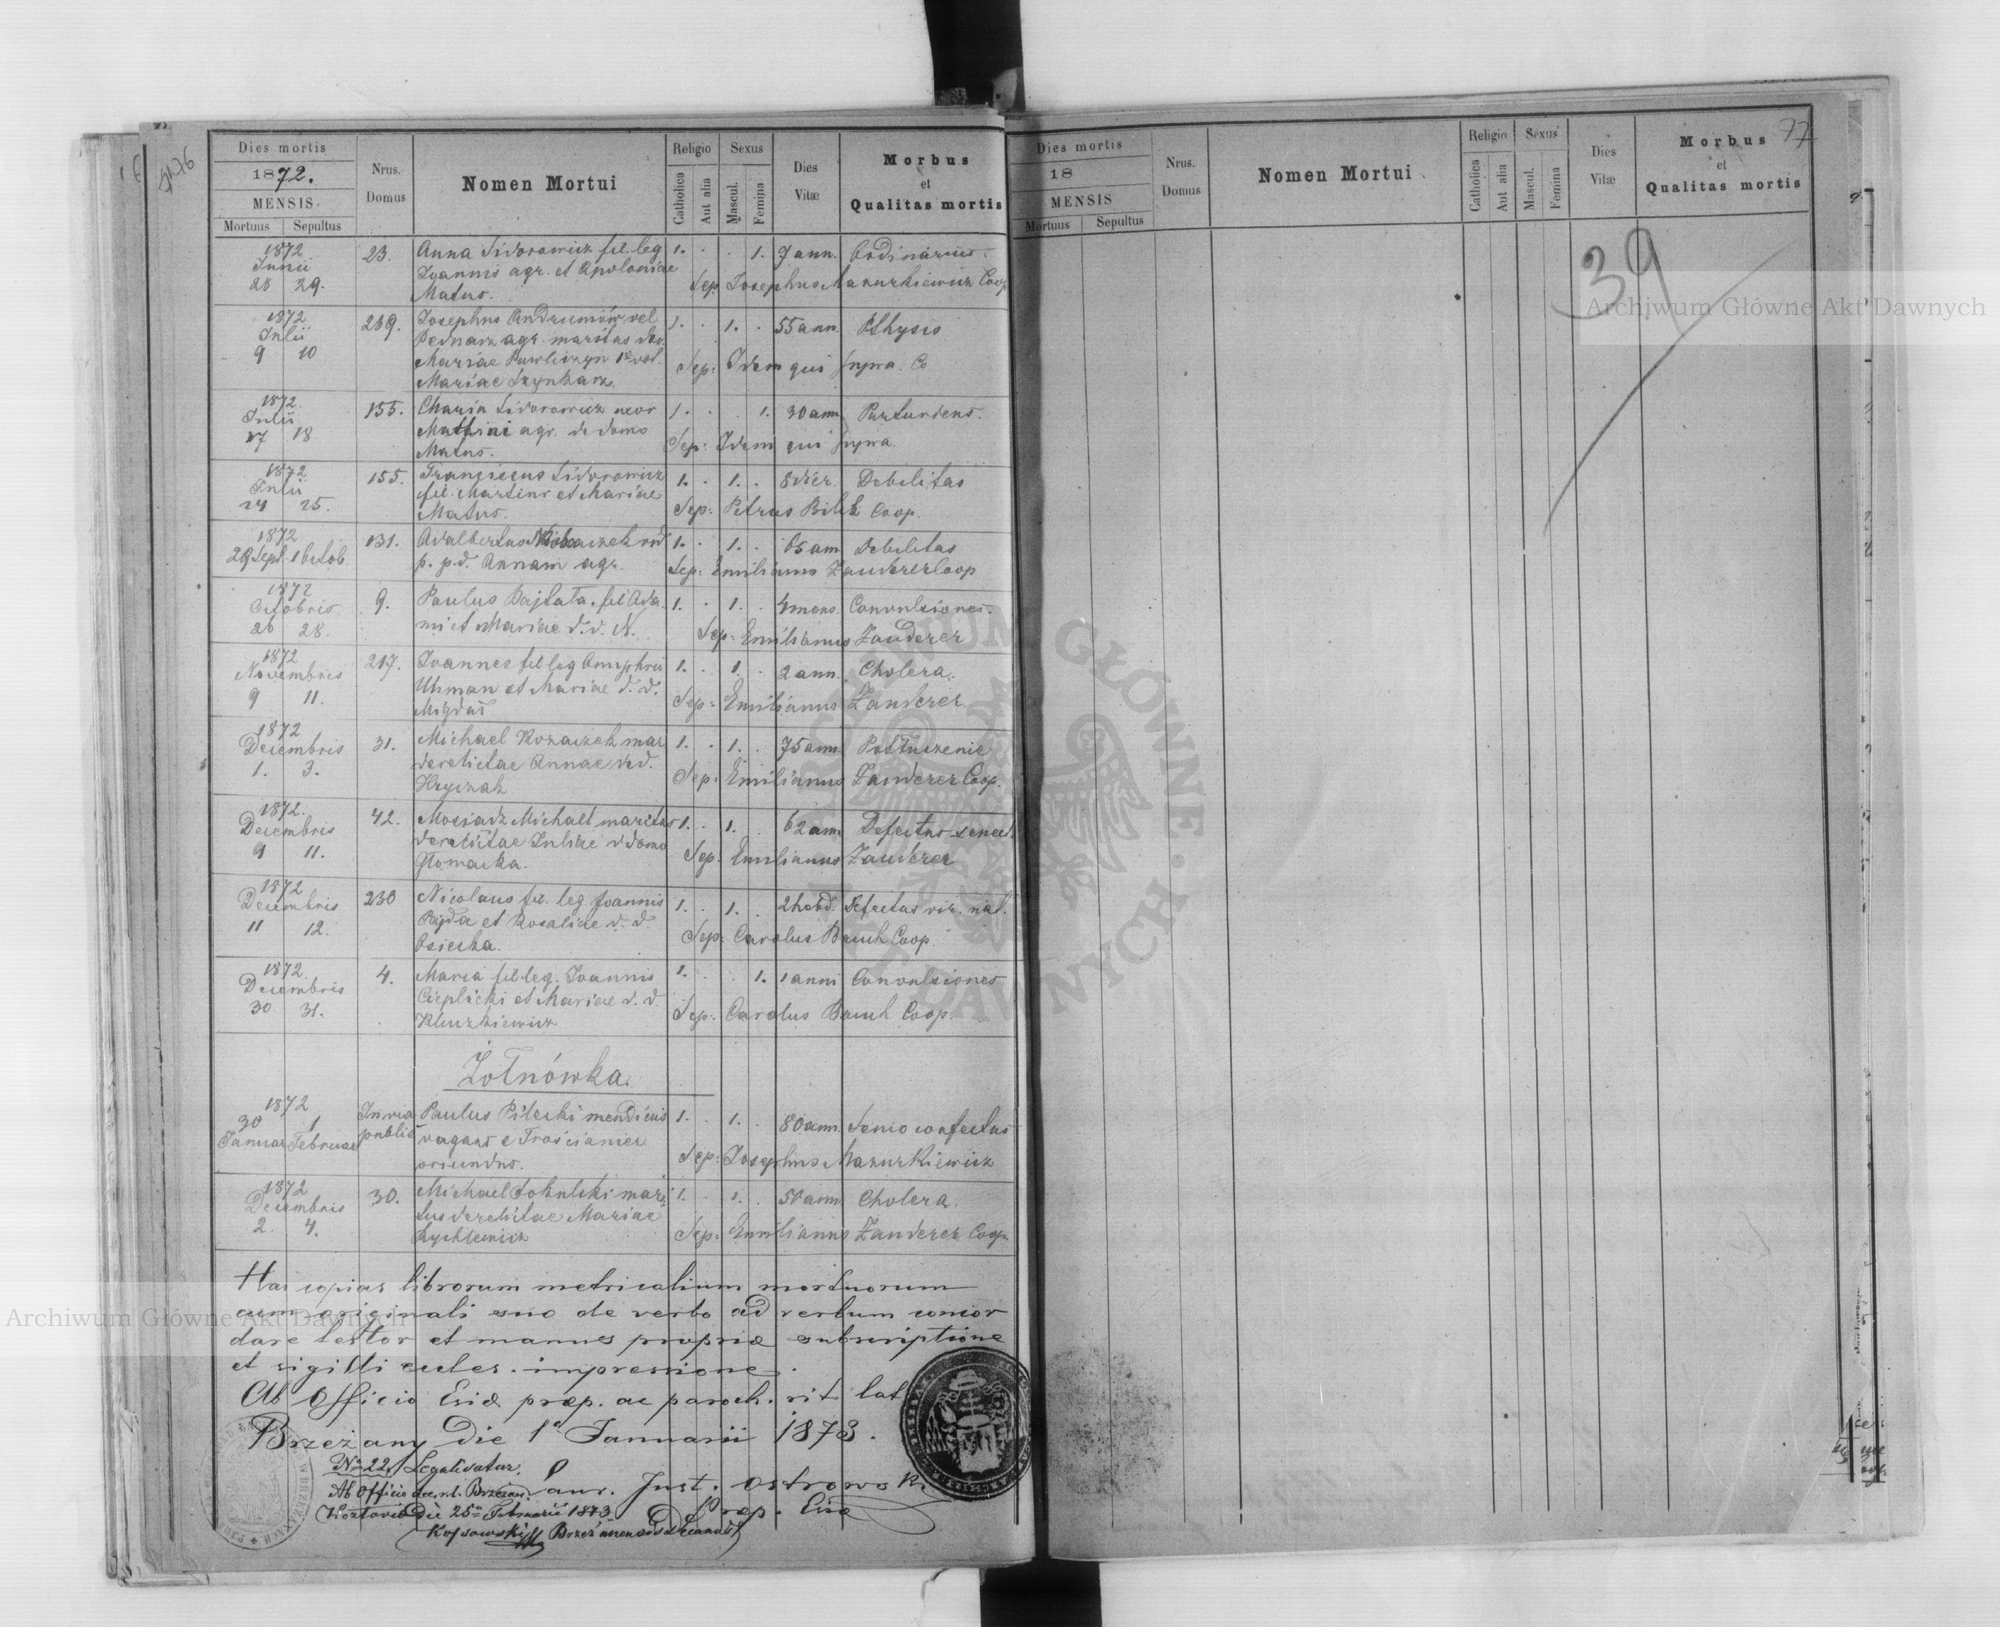 76
Dies mortis
1872.
MENSIS
Mortuus Sepultus
Nrus. Domus
Nomen Mortui
Religio
Catholica
Aut alia
Sexus
Mascul.
Femina
Dies Vitæ
Morbus et Qualitas mortis
1872 Junii 28 29. 23. Anna Sidorowicz fil. leg. 1. 1. 7 ann. Ordinarius.
Joannis agr. et Apoloniae Sep. Josephus Mazurkiewicz Coop
Matus.
1872 Julii 9 10 269. Josephus Andrumów vel 1. 1. 55 ann. Pthysis
Bednarz agr. maritus
Mariae Pawliszyn 1o vot. Sep: Idem qui supra. Co
Mariae Szynkarz.
1872. Julii 17 18 155. Maria Sidorowicz uxor 1. 1. 30 ann. Parturiens.
agr. de domo Sep: Idem qui supra
Matus.
1872 Julii 24 25. 155. Franciscus Sidorowicz 1. 1. 8 dier. Debilitas
fil. Martini et Mariae Sep: Petrus Bilek Coop.
Matus.
1872 29 Sept. 1 Octob. 131. Adalbertus 1. 1. 65 ann Debilitas
p. p. d. Annam agr. Sep: Emilianus Zauderer Coop
1872 Octobris 26 28. 9. Paulus Bajtala. fil. Ada 1. 1. 4 mens. Convulsiones.
mi et Mariae d. d. N. Sep: Emilianus Zauderer
1872 Novembris 9 11. 217. Joannes fil leg Onuphrii 1. 1. 2 ann. Cholera.
Uhman et Mariae d. d. Sep: Emilianus Zauderer
Migdal
1872 Decembris 1. 3. 31. Michael Kozaczek mar 1. 1. 75 ann.
derelictae Annae de d. Sep: Emilianus Zauderer Coop.
Hryczak
1872. Decembris 9 11. 42. Mosiadz Michael maritus 1. 1. 62 ann Defectus senect.
derelictae Juliae d domo Sep: Emilianus Zauderer
Glomacka.
1872 Decembris 11 12. 230 Nicolaus fil. leg. Joannis 1. 1. 2 hebd. Defectus vir. nat.
Bajda et Rosaliae d. d. Sep: Carolus Bauch Coop
Osiecka.
1872. Decembris 30 31. 4. Maria fil leg. Joannis 1. 1. 1 anni Convulsiones
Cieplicki et Mariae d. d. Sep: Carolus Bauch Coop.
Kluczkiewicz
Żołnówka.
1872 30 Januar 1 Februar In via publica Paulus Pilecki mendicus 1. 1. 80 ann. Senio confectus
vagans e Trościaniec Sep: Josephus Mazurkiewicz
oriundus.
1872 Decembris 2 4. 30. Michael Sobulski mari 1. 1. 50 ann. Cholera.
tus derelictae Mariae Sep: Emilianus Zauderer Coop.
Rychlewicz
Has copias librorum metricalium mortuorum
cum originali suo de verbo ad verbum concor
dare testor et manus propriæ subscriptione
et sigilli eccles. impressione.
Ab Officio Eccl. præp. ac paroch. rit. lat
Brzeżany die 1a Januarii 1873.
No 22 Legalisatur.
Ab Officio dec. r. l. Brzeżan.
Kozłowie Die 25a Februarii 1873
Just. Ostrowski
Præp. Eccl
Kossowski Brzeżanensis decanus
Dies mortis
18
MENSIS
Mortuus Sepultus
Nrus. Domus
Nomen Mortui
Religio
Catholica
Aut alia
Sexus
Mascul.
Femina
Dies Vitæ
Morbus et Qualitas mortis
77
39
Archiwum Główne Akt Dawnych
Archiwum Główne Akt Dawnych
ARCHIWUM GŁÓWNE AKT DAWNYCH